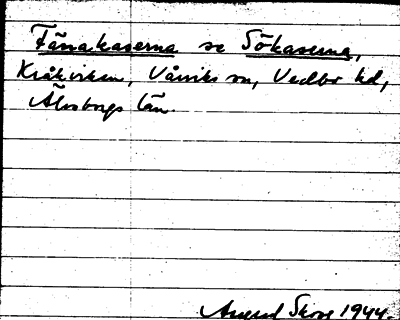 Fänakaserna se Sökaserna,
Kråkviken, Vårviks sn, Vedbo hd,
Älvsborgs län.
Skoog 1944.